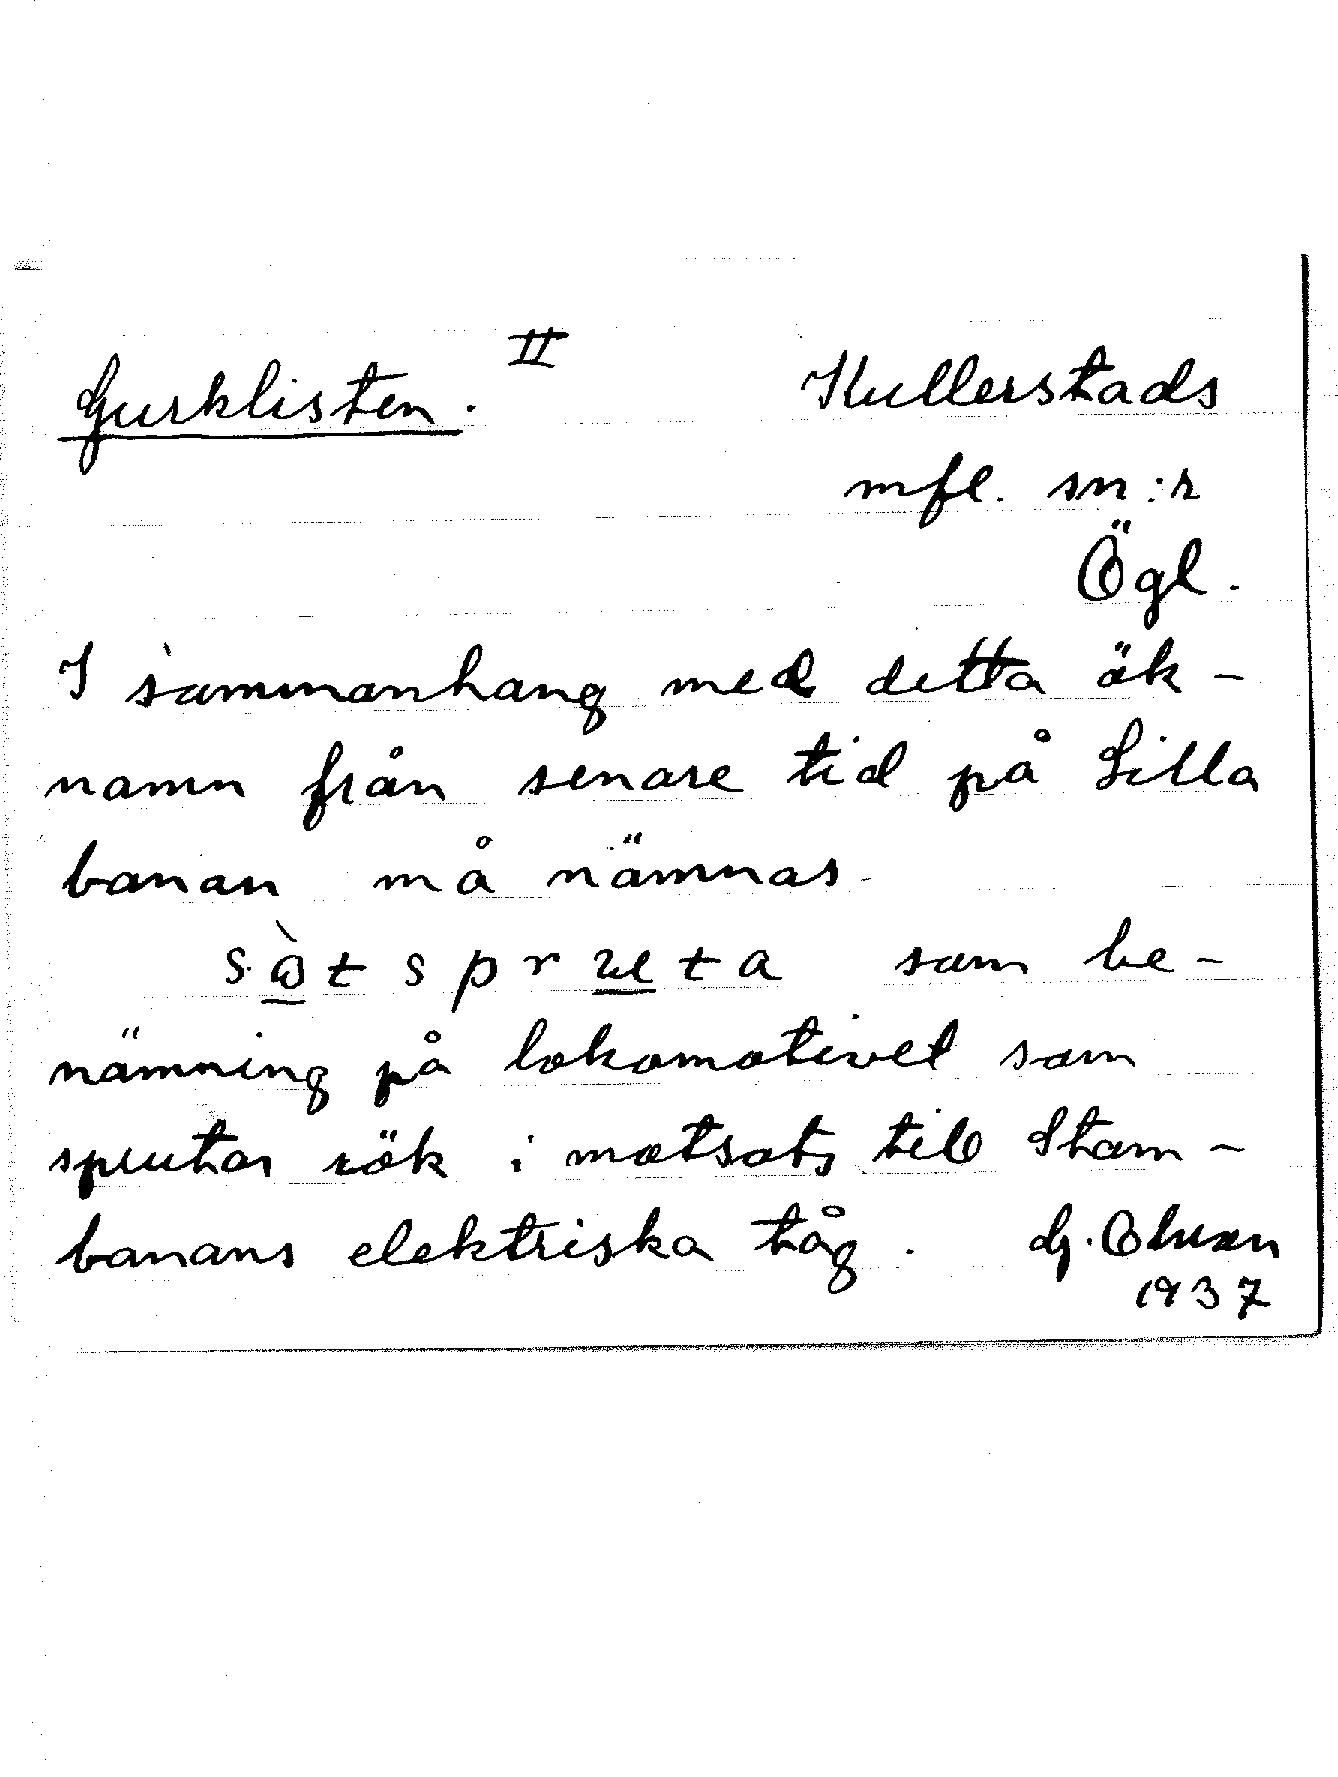 Gurklisten. II Kullerstads
mfl. sn:r
Ögl.
I sammanhang med detta ök-
namn från senare tid på Lilla
banan må nämnas
sòtspruta som be-
nämning på lokomotivet som
sprutar rök i motsats till Stam-
banans elektriska tåg. G. Olsson
1937